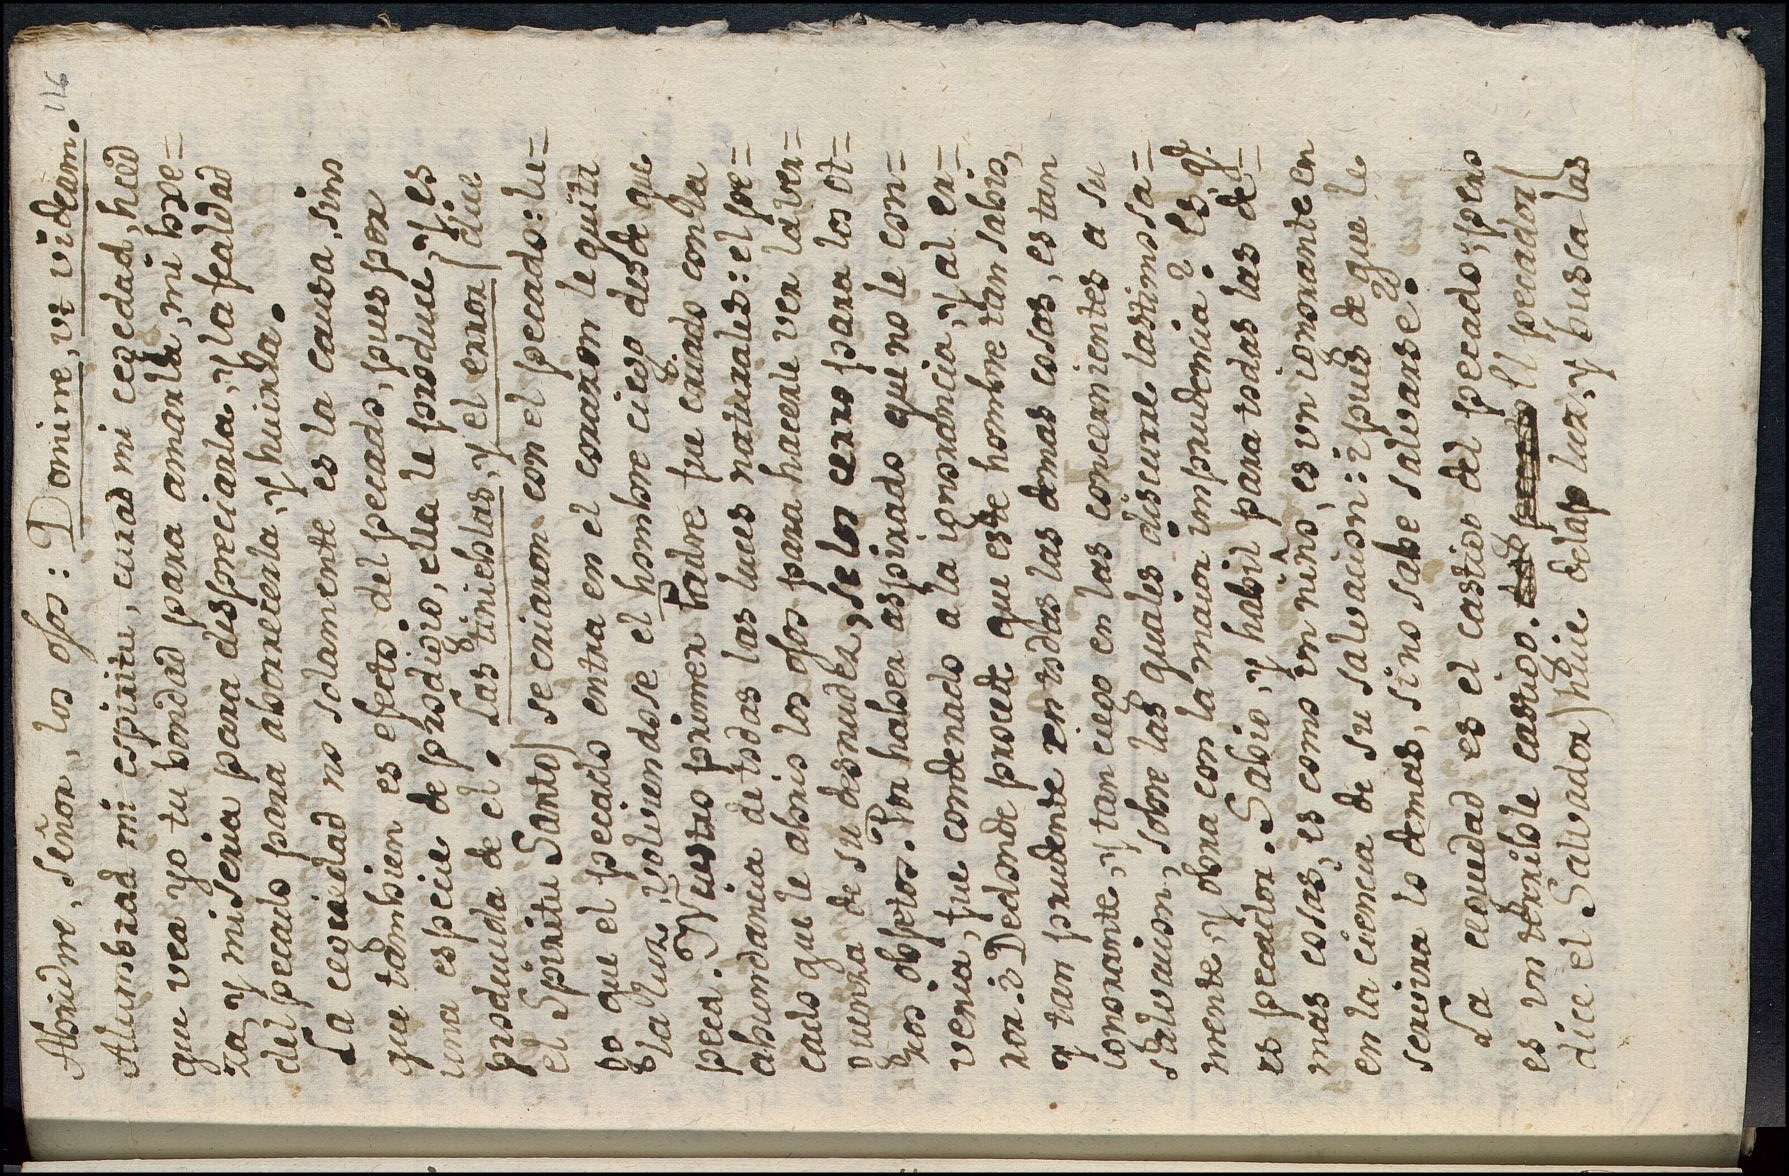 116
Abridme, Señor, los ojos: Domine, ut videam.
Alumbrad mi espiritu, curad mi ceguedad, haced
que vea yo tu bondad para amarla, mi pobre=
za, y miseria para despreciarla, y la fealdad
del pecado para aborrecerla, y huirla.
La ceguedad no solamente es la causa, sino
que tambien es efecto del pecado, pues por
una especie de prodigio, ella le produce, y es
producida de el. Las tinieblas, y el error (dice
el Spiritu Santo) se criaron con el pecado: lue=
go que el pecado entra en el corazon le quita
la luz, bolviendose el hombre ciego desde que
peca. Nuestro primer Padre fue criado con la
abundancia de todas las luces naturales: el pe=
cado que le abrio los ojos para hacerle ver la ver=
guenza de su desnudez, se los cerro para los ot=
ros objetos. Por haber aspirado que no le con=
venia, fue condenado a la ignorancia, y al er=
ror. ¿De donde procede que este hombre tan sabio,
y tan prudente en todas las demas cosas, es tan
ignorante, y tan ciego en las concernientes a su
salvacion, sobre las quales discurre lastimosa=
mente, y obra con la maior imprudencia? es q.e
es pecador. Sabio, y habil para todas las de=
mas cosas, es como un niño, es un ignorante en
en la ciencia de su salvacion: ¿pues de que le
servira lo demas, si no sabe salvarse?
La ceguedad es el castigo del pecado, pero
es un terrible castigo. El pecador (
dice el Salvador) huie de la luz, y busca las